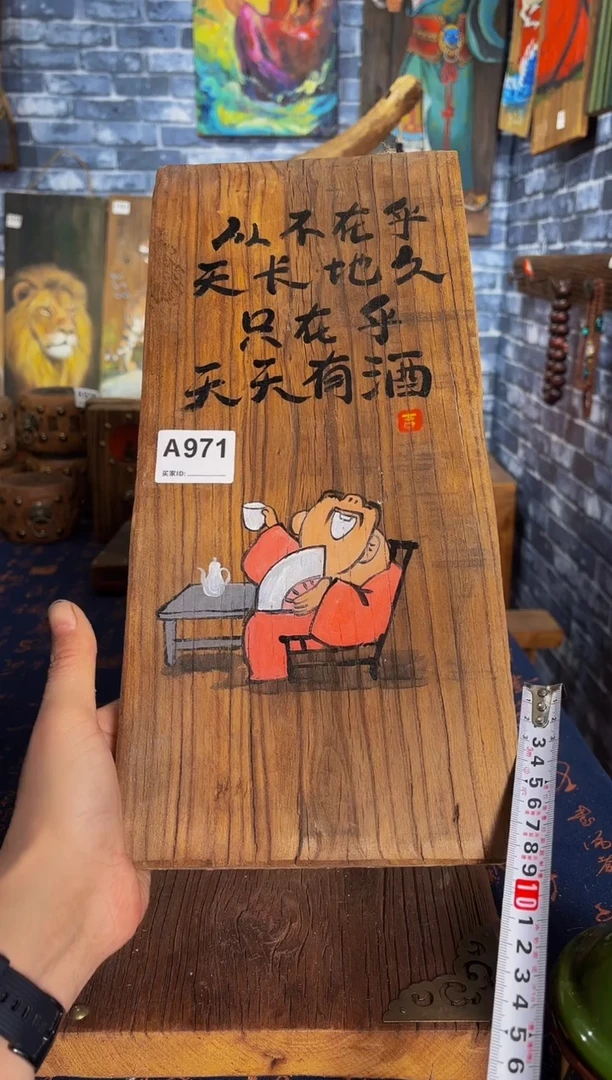 从不在乎
天长地久
只在乎
天天有酒
A971
买家ID:
3
4
5
6
7
8
9
10
1
2
3
4
5
6